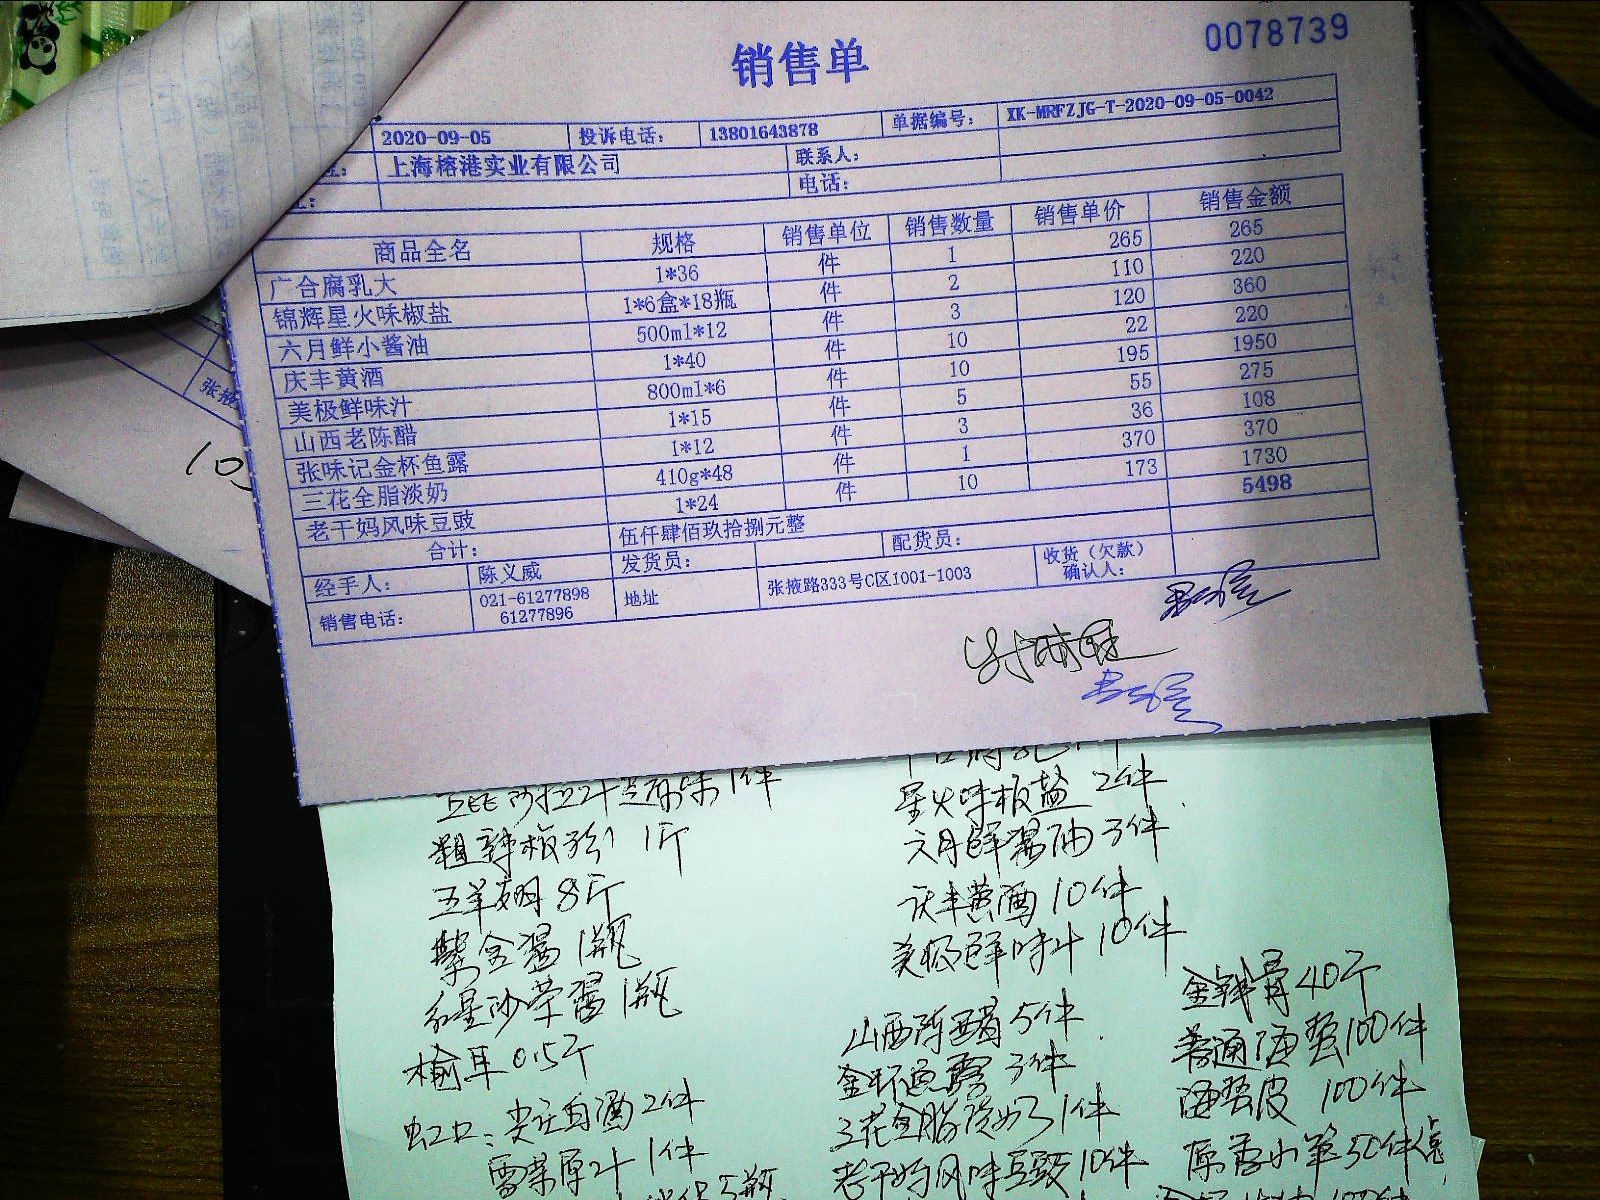 0078739
销售单
2020-09-05 投诉电话: 13801643878 单据编号: XK-MRFZJG-T-2020-09-05-0042
上海榕港实业有限公司 联系人:
电话:
商品全名 规格 销售单位 销售数量 销售单价 销售金额
广合腐乳大 1*36 件 1 265 265
锦辉星火味椒盐 1*6盒*18瓶 件 2 110 220
六月鲜小酱油 500ml*12 件 3 120 360
庆丰黄酒 1*40 件 10 22 220
美极鲜味汁 800ml*6 件 10 195 1950
山西老陈醋 1*15 件 5 55 275
张味记金杯鱼露 1*12 件 3 36 108
三花全脂淡奶 410g*48 件 1 370 370
老干妈风味豆豉 1*24 件 10 173 1730
合计: 伍仟肆佰玖拾捌元整 5498
经手人: 陈义威 发货员: 配货员: 收货(欠款)确认人:
销售电话: 021-61277898 61277896 地址 张掖路333号C区1001-1003
张掖
10
1件
粗辣椒粉 1斤
五羊 8斤
紫金酱 1瓶
红星 酱 1瓶
榆耳 0.5斤
虹口: 白酒 2件
原汁 1件
5瓶
星火味椒盐 2件
六月鲜酱油 3件
庆丰黄酒 10件
美极鲜味汁 10件
山西陈醋 5件
金杯鱼露 3件
三花全脂淡奶 1件
老干妈风味豆豉 10件
金钱骨 40个
普通海蜇 100件
海蜇皮 100件
原香小笋 50件